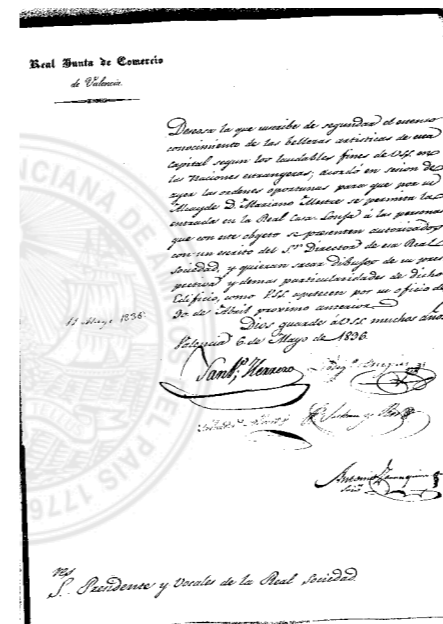 Real Junta de Comercio
de Valencia.
Deseosa la que suscribe de segundar el extenso
conocimiento de las bellezas artisticas de esta
Capital segun los laudables fines de VSS. en
las Naciones estrangeras, acordó en sesion de
ayer las ordenes oportunas para que por el
Alcayde D. Mariano Mestre se permita la
entrada en la Real Casa Lonja á las personas
que con este objeto se presenten autorizadas
con un escrito del Sr. Director de esa Real
Sociedad, y quieran sacar dibujos de su
y demas particularidades de dicho
Edificio, como VSS. apetecen por su oficio de
30 de Abril proximo anterior.
11 Mayo 1836.
Dios guarde á VSS. muchos años
Valencia 6 de Mayo de 1836.
Sant. Herrero
Antonio
Sres. Presidente y Vocales de la Real Sociedad.
EL PAIS 1776